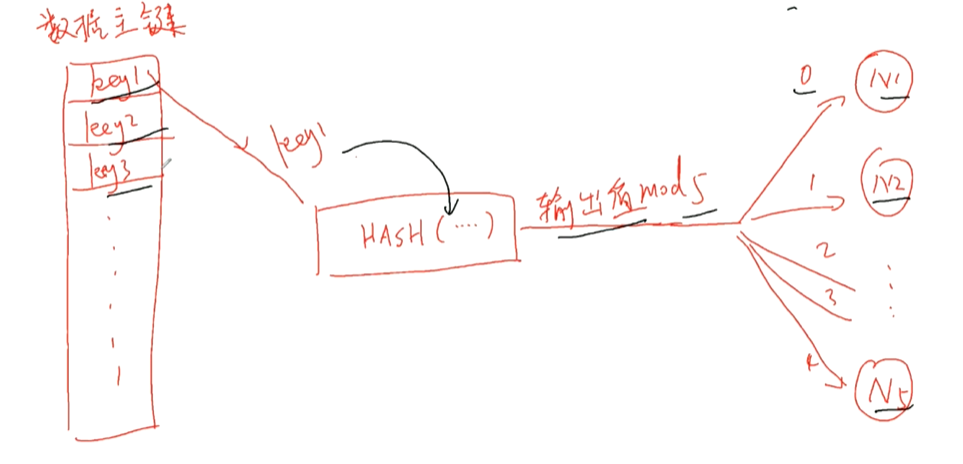 数据主键
key1
key2
key3
key1
HASH(····)
输出值mod5
0
1
2
3
4
N1
N2
N5